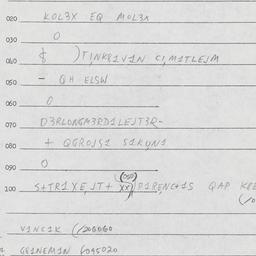 020 KOL3X EQ MOL3X
030 O
040 $ )TINKR1V1N C,M1TLEJM
050 - QH ELSW
060 O
070 D3RLONGM3RD1LEJT3R-
080 + QGROJS1 S1KUN1
090 O
100 S+TR1XEJT+ (050) P1RENC+1S QAP
V1NC1K (/206060
GR1NEM1N 6095020